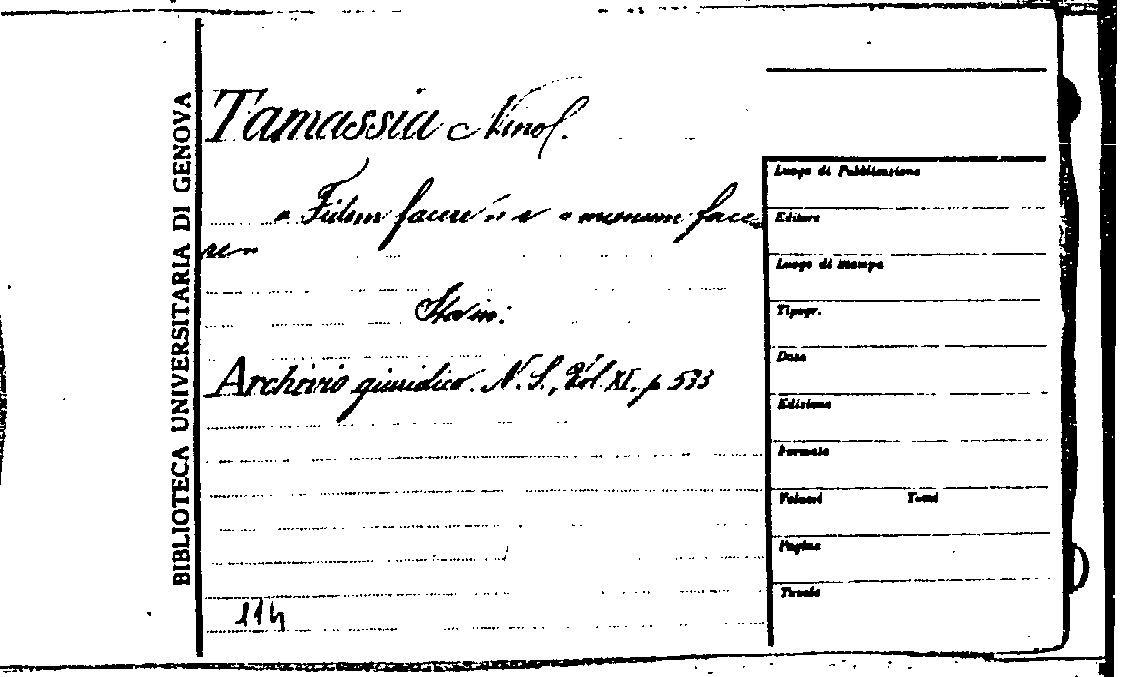 BIBLIOTECA UNIVERSITARIA DI GENOVA
Tamassia Nino.
« Fidem facere » e « manum face
re »
Sta in:
Archivio giuridico. N. S., Vol. XI., p 573
114
Luogo di Pubblicazione
Editore
Luogo di stampa
Tipogr.
Data
Edizione
Formato
Volumi Tomi
Pagine
Tavole